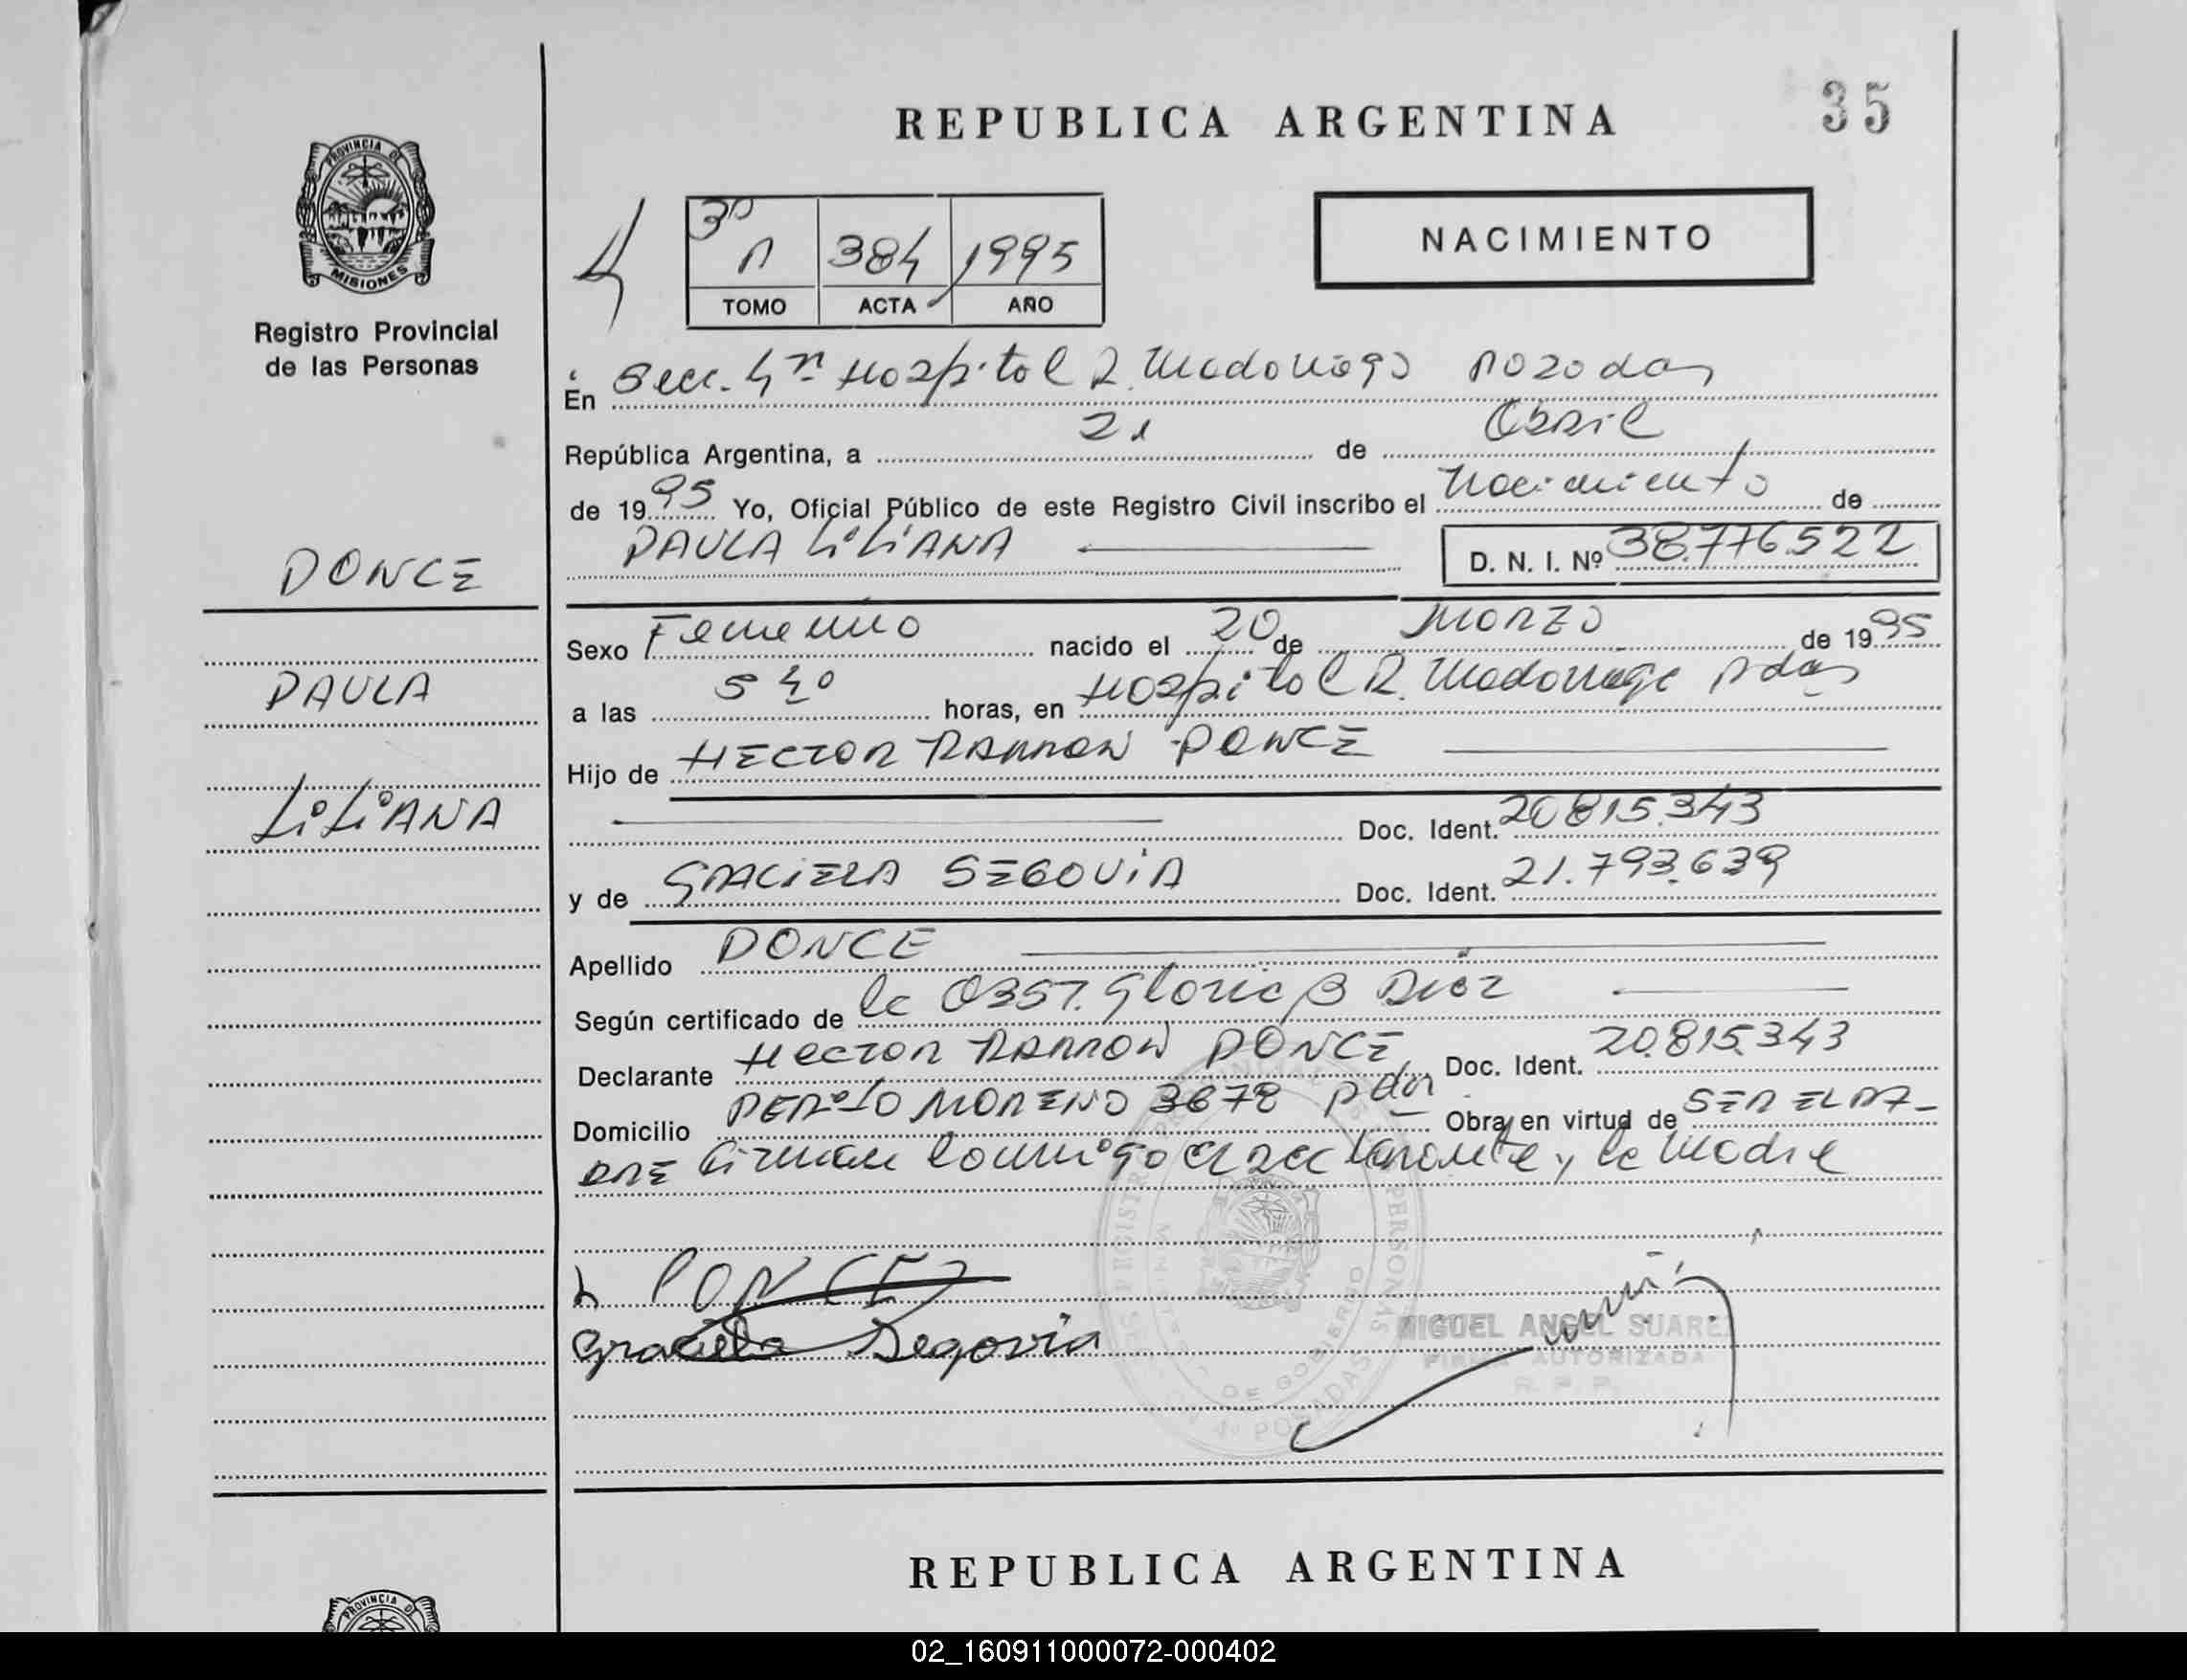 REPUBLICA ARGENTINA
35
PROVINCIA DE
MISIONES
Registro Provincial
de las Personas
3º
A 384 1995
TOMO ACTA AÑO
NACIMIENTO
En Secc. 4ta Hospital R. Madariaga Posadas
República Argentina, a 21 de Abril
de 1995 Yo, Oficial Público de este Registro Civil inscribo el Nacimiento de
PAULA LILIANA D. N. I. Nº 38.776.522
PONCE
PAULA
LILIANA
Sexo Femenino nacido el 20 de Marzo de 1995
a las 5 40 horas, en Hospital R. Madariaga Pdas
Hijo de HECTOR RAMON PONCE
Doc. Ident. 20.815.343
y de GRACIELA SEGOVIA Doc. Ident. 21.793.639
Apellido PONCE
Según certificado de la Obst. Gloria B Diaz
Declarante HECTOR RAMON PONCE Doc. Ident. 20.815.343
Domicilio PERITO MORENO 3678 Pdas Obra en virtud de SER EL PA-
DRE Firman conmigo el declarante y la Madre
PONCE
Graciela Segovia
MIGUEL ANGEL SUAREZ
FIRMA AUTORIZADA
R. P. P.
MINISTERIO DE GOBIERNO
REPUBLICA ARGENTINA
PROVINCIA DE
02_160911000072-000402